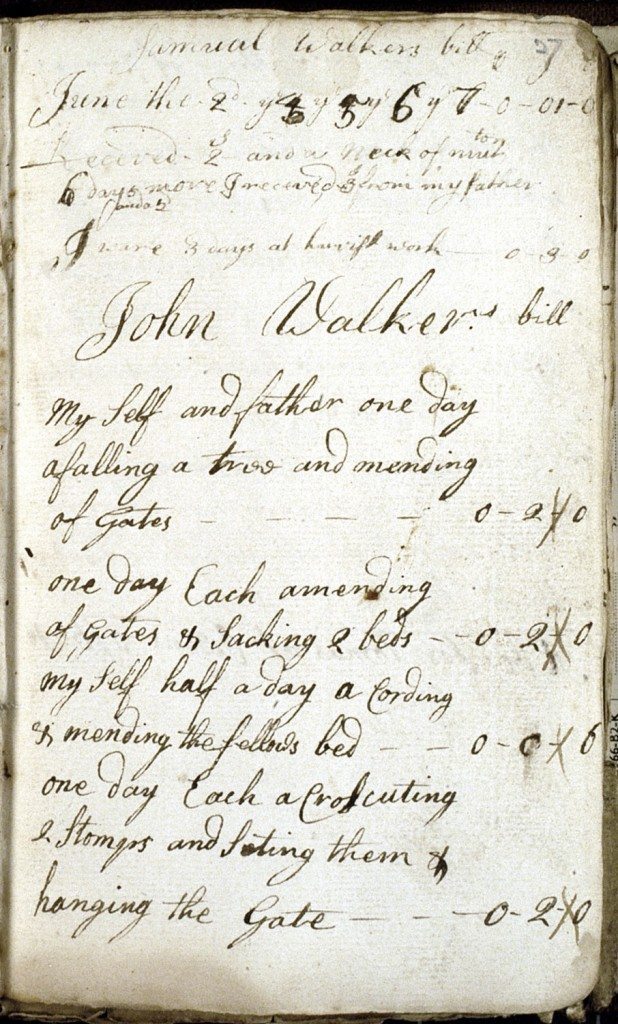 Samuail Walkers bill 27
June the 2d ye 4 ye 5 ye 6 ye 7 - 0 - 01 - 0
Receved 2s and a Neck of mutton
6 days more I receved 3s from my father
and a
I ware 3 days at harvist work — 0 - 3 - 0
John Walker.s bill
My Self and father one day
afalling a tree and mending
of Gates — — — — 0 - 2 - 0
one day Each amending
of Gates & Sacking 2 beds — 0 - 2 - 0
my Self half a day a Cording
& mending the fellows bed — — 0 - 0 - 6
one day Each a Croscuting
2 Stomps and Seting them &
hanging the Gate — — — 0 - 2 - 0
66-B2-K